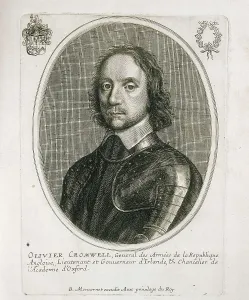 OLIVIER CROMWELL, General des Armées de la Republique
Angloise, Lieutenant et Gouverneur d'Irlande, & Chancelier de
l'Academie d'Oxford.
B. Moncornet excudit Avec privilege du Roy